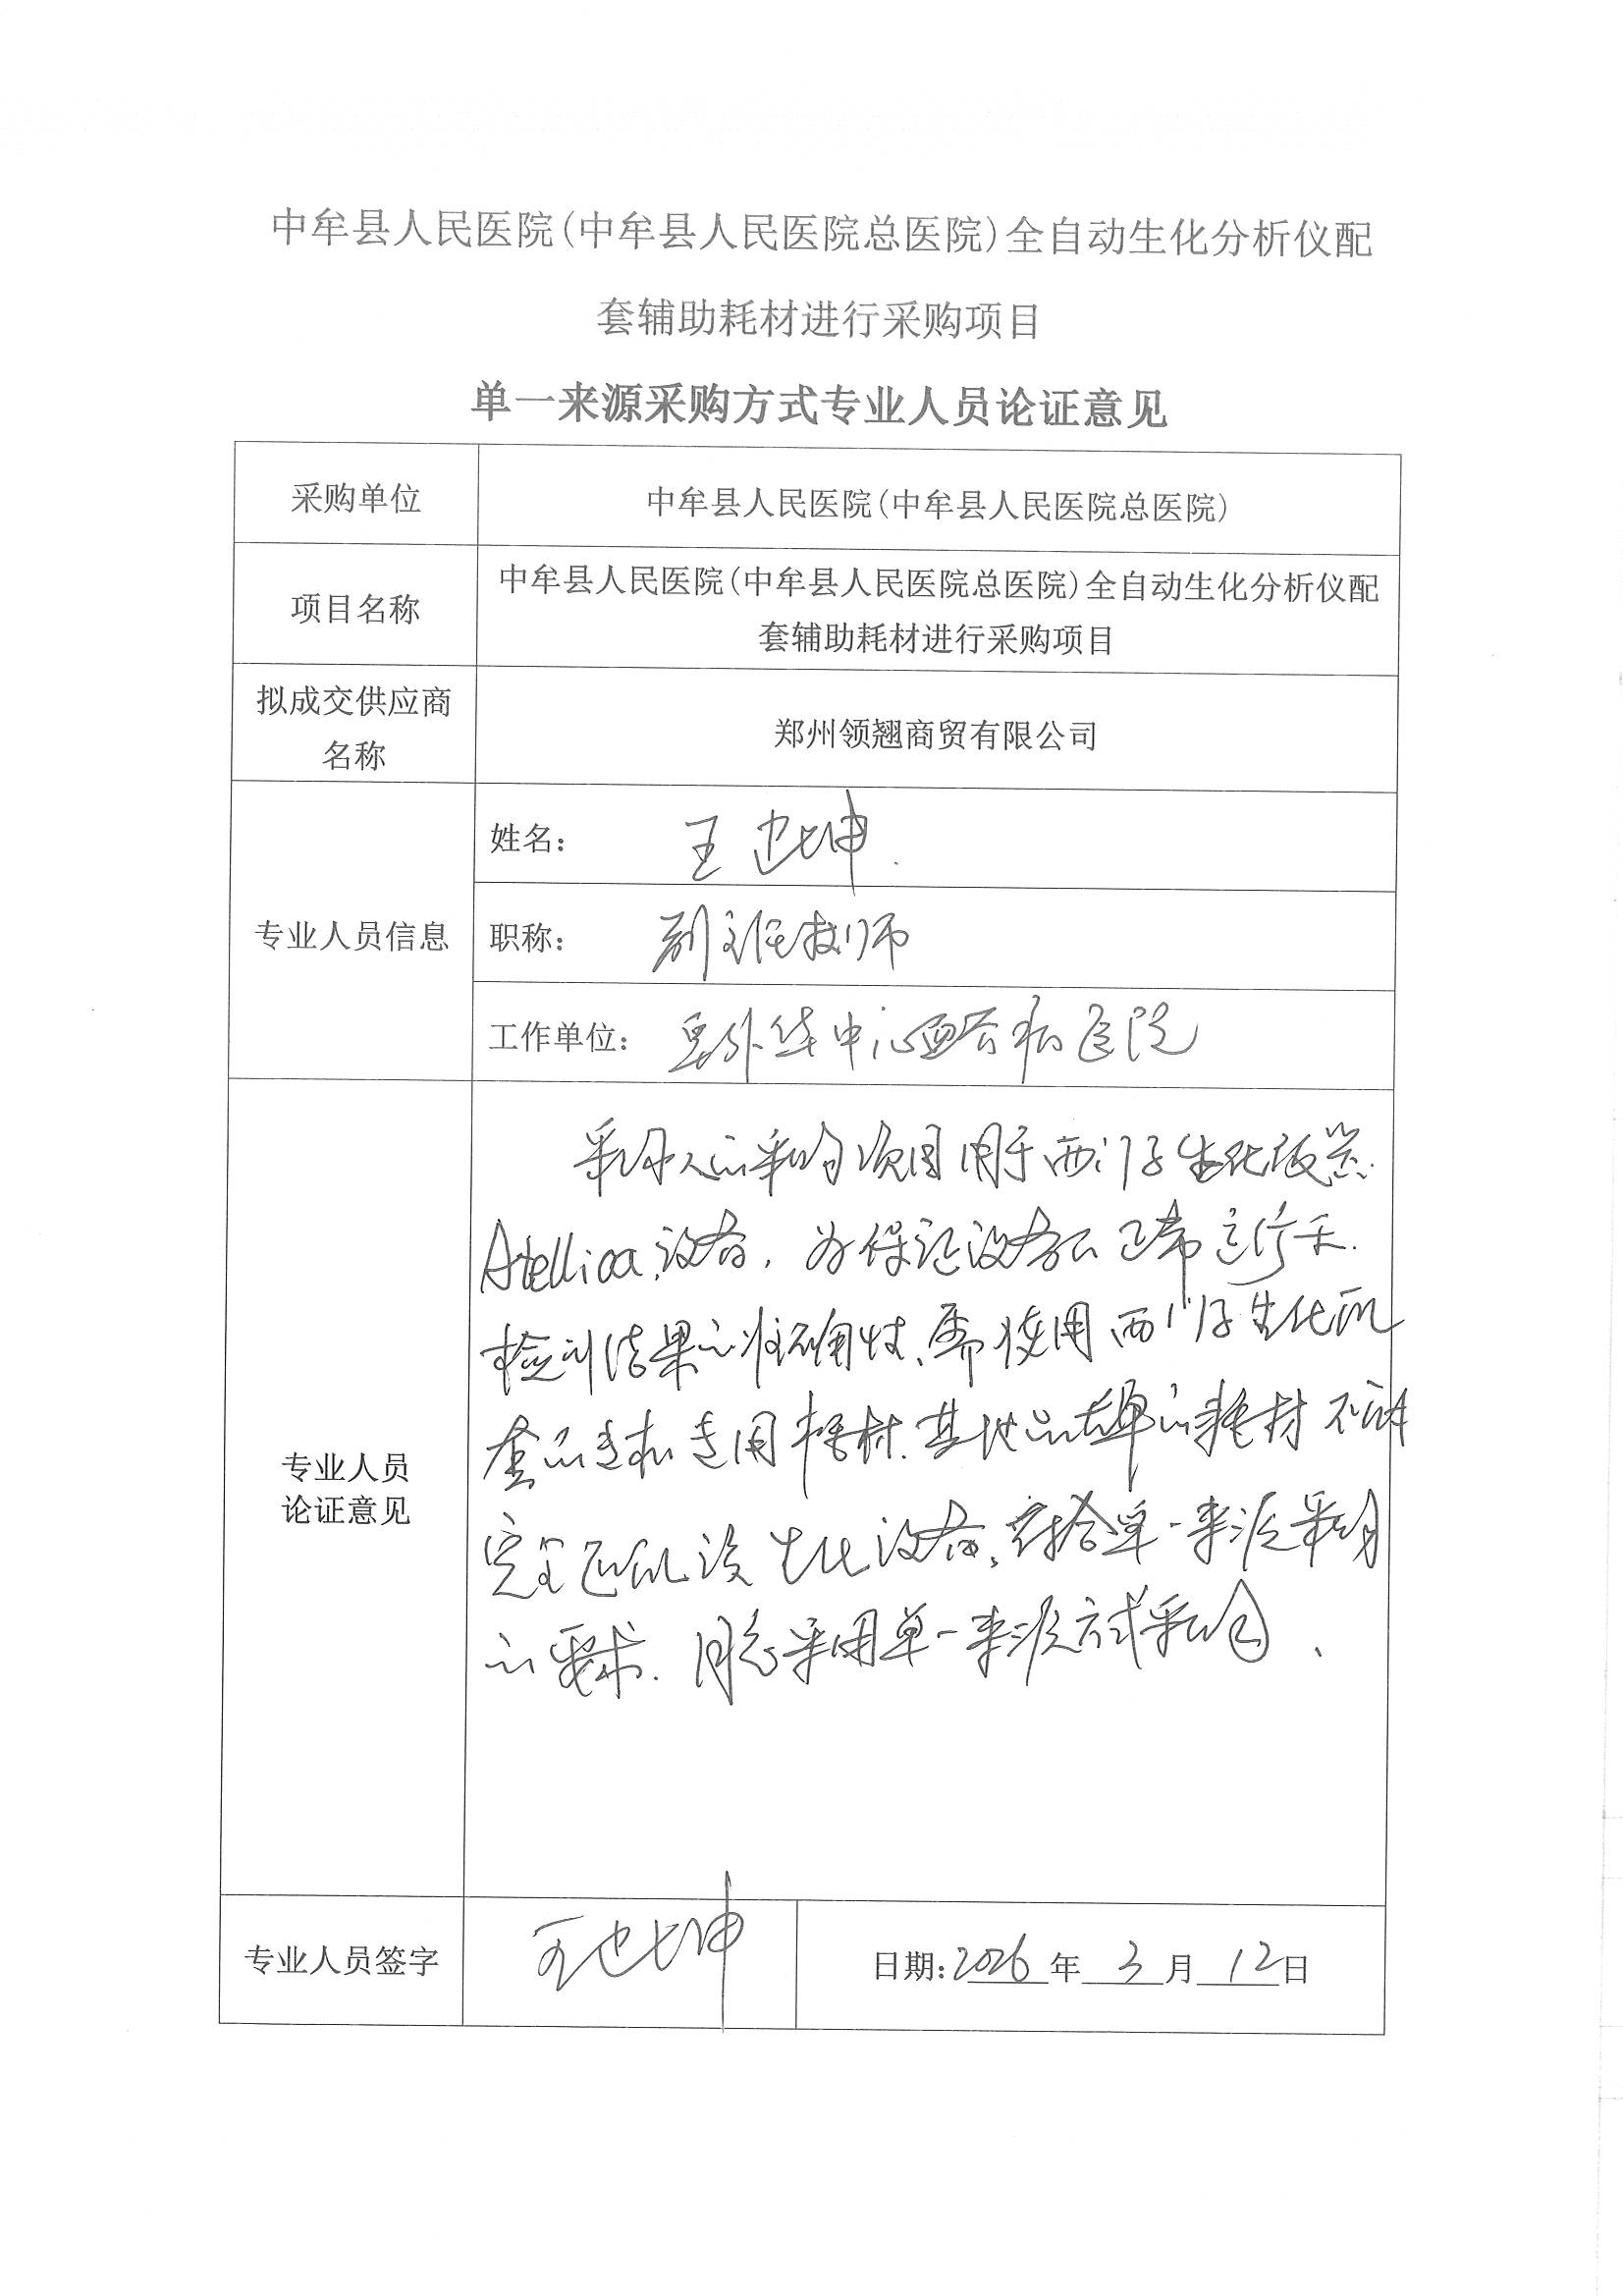 中牟县人民医院(中牟县人民医院总医院)全自动生化分析仪配
套辅助耗材进行采购项目
单一来源采购方式专业人员论证意见
采购单位
中牟县人民医院(中牟县人民医院总医院)
项目名称
中牟县人民医院(中牟县人民医院总医院)全自动生化分析仪配
套辅助耗材进行采购项目
拟成交供应商
名称
郑州领翘商贸有限公司
专业人员信息
姓名: 王
职称: 副主任技师
工作单位: 阜外华中心血管病医院
专业人员
论证意见
采购人的采购项目用于西门子生化仪器
Atellica设备,为保证设备的正常运行和
检测结果的准确性、需使用西门子生化配
套的专机专用耗材.其他品牌的耗材不能
完全匹配该生化设备,符合单一来源采购
的要求.同意采用单一来源方式采购、
专业人员签字
王
日期:2026年3月12日